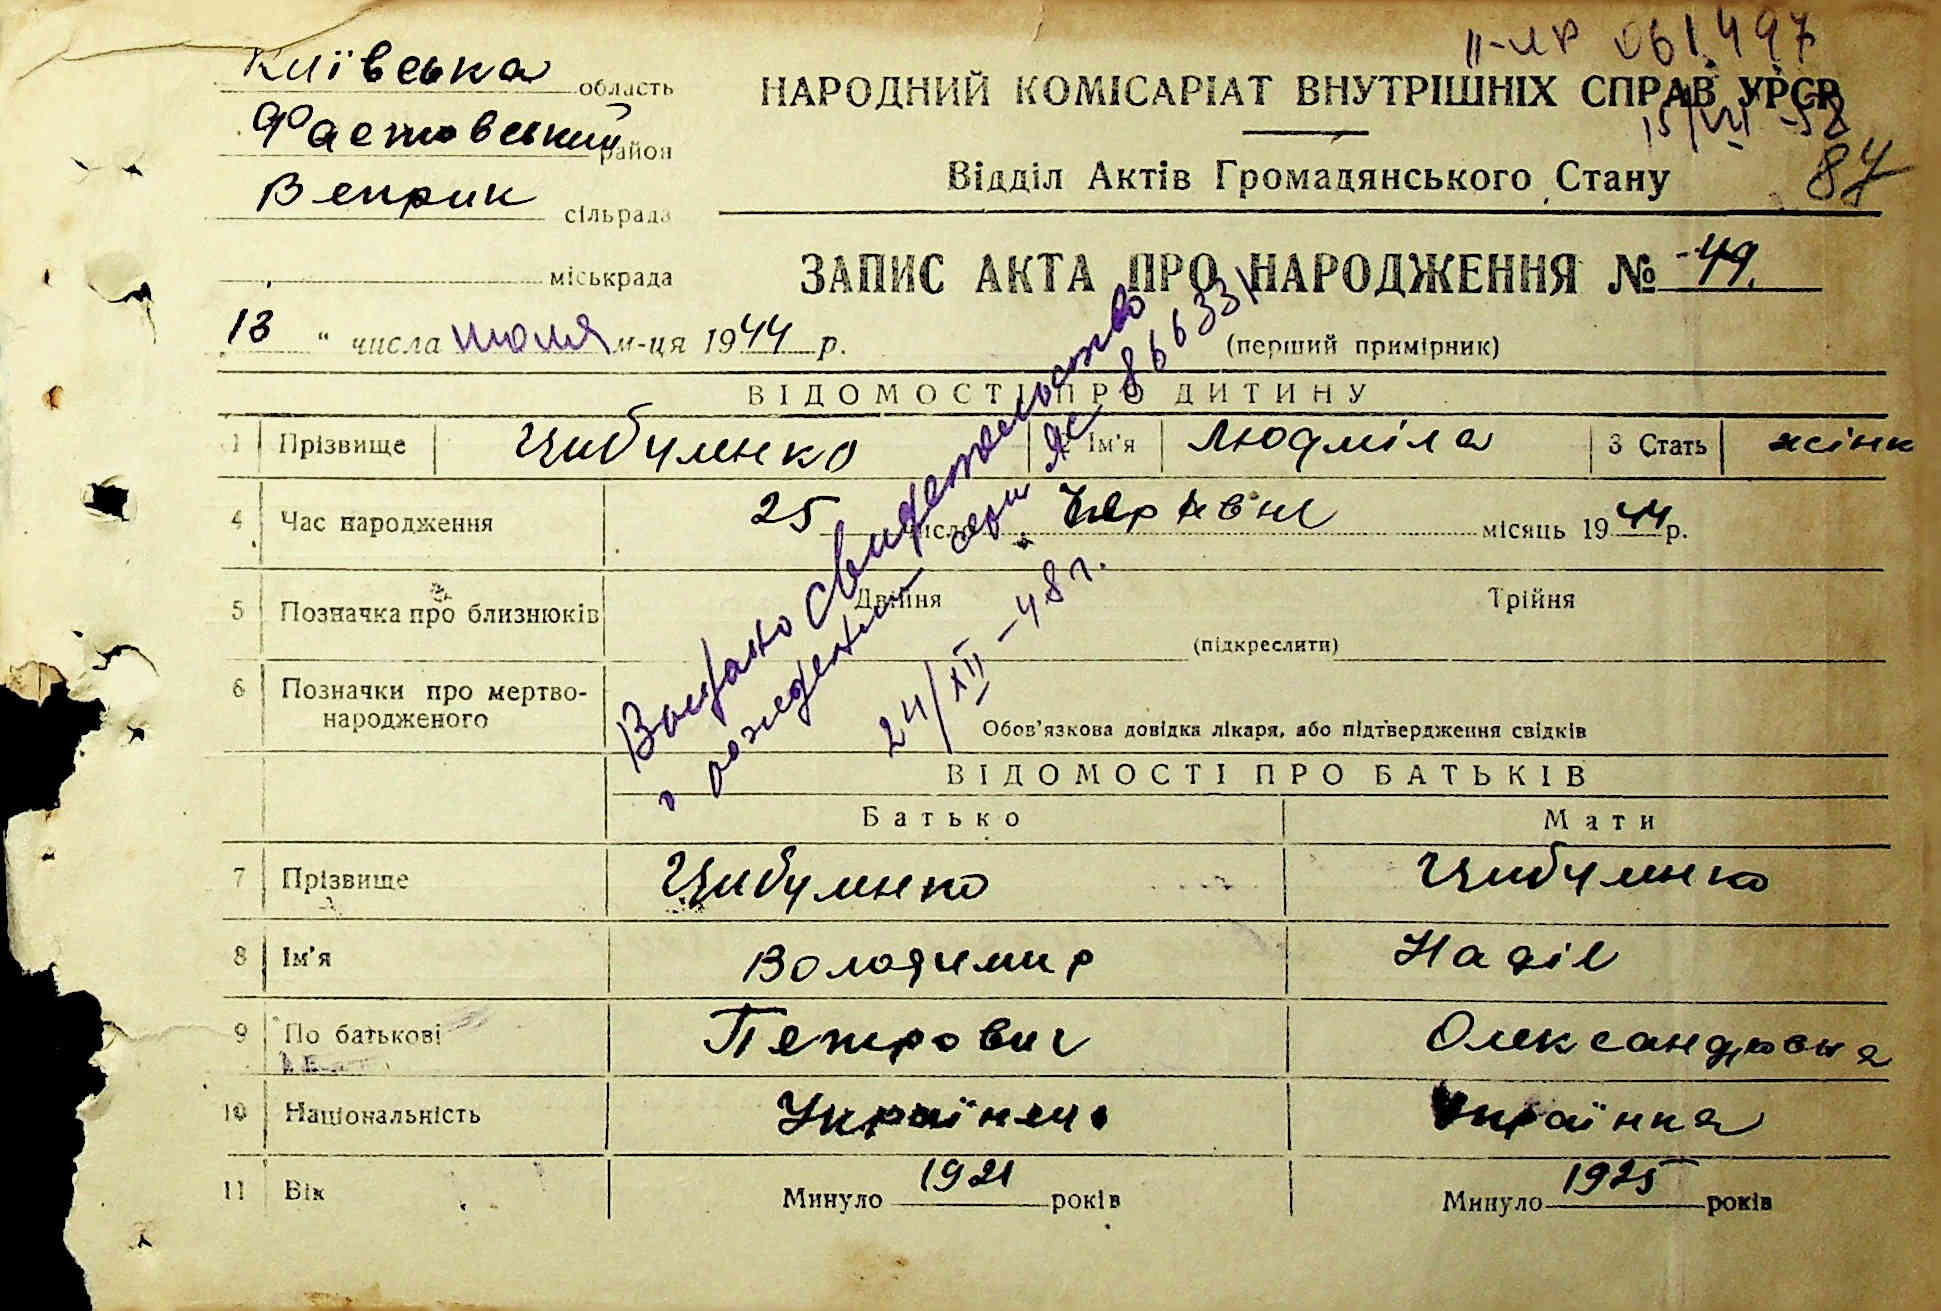 Київська область
II-ЛР 061497
НАРОДНИЙ КОМІСАРІАТ ВНУТРІШНІХ СПРАВ УРСР
Фастовський район
15/VII-52
Відділ Актів Громадянського Стану
87
Веприк сільрада
міськрада
ЗАПИС АКТА ПРО НАРОДЖЕННЯ № 49.
13 " числа июля м-ця 1944 р.
(перший примірник)
ВІДОМОСТІ ПРО ДИТИНУ
1 Прізвище Цибуленко Ім'я Людміла 3 Стать жінк
4 Час народження 25 число Червня місяць 1944 р.
5 Позначка про близнюків Двійня Трійня
(підкреслити)
6 Позначки про мертво-
народженого
Обов'язкова довідка лікаря, або підтвердження свідків
Выдано свидетельство
о рождении серии 866331
24/XII-48 г.
ВІДОМОСТІ ПРО БАТЬКІВ
Батько Мати
7 Прізвище Цибуленко Цибуленко
8 Ім'я Володимир Надія
9 По батькові Петрович Олександровна
10 Національність Українець Українка
11 Вік Минуло 1921 років Минуло 1925 років